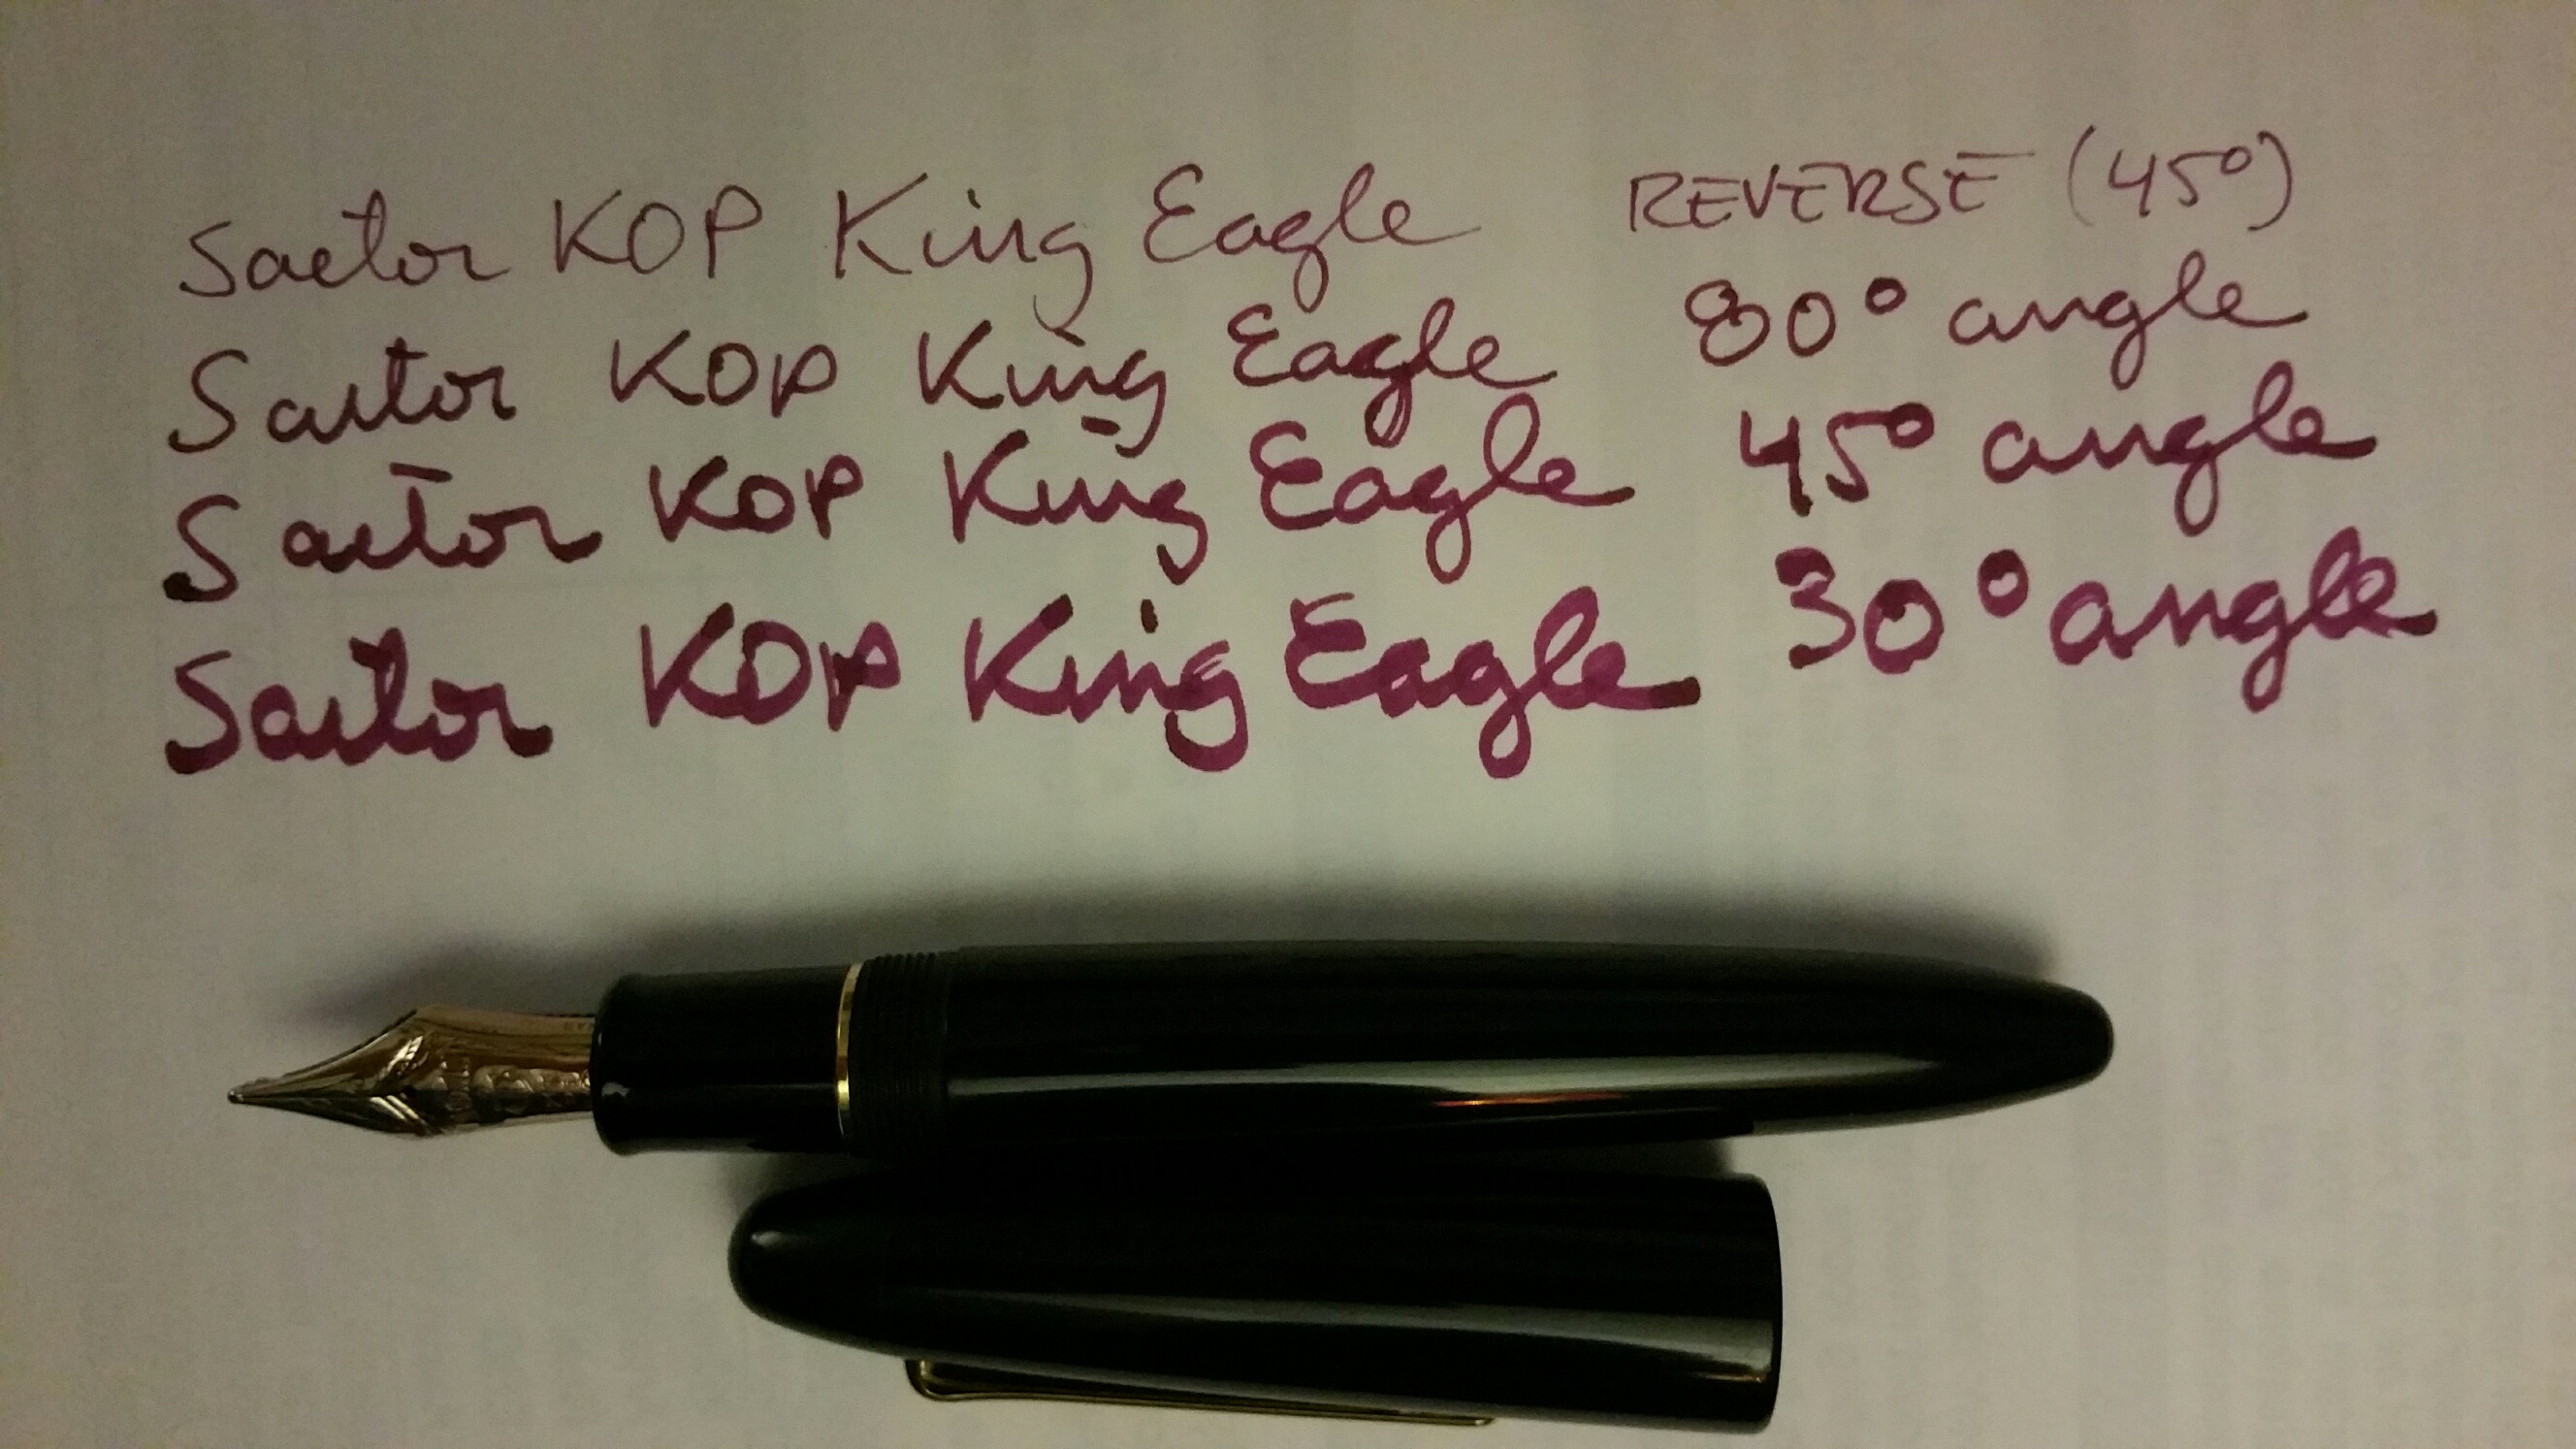 Sailor KOP King Eagle REVERSE (45°)
Sailor KOP King Eagle 80° angle
Sailor KOP King Eagle 45° angle
Sailor KOP King Eagle 30° angle